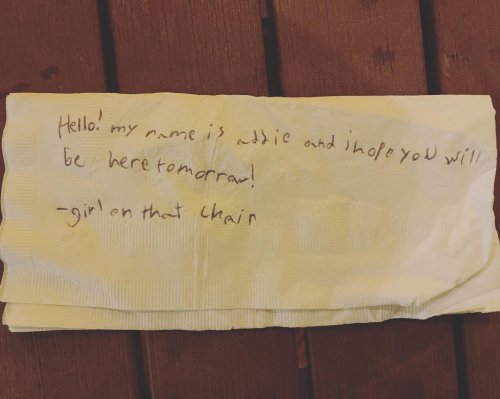 Hello! my name is addie and i hope you will
be here tomorrow!
-girl on that chair